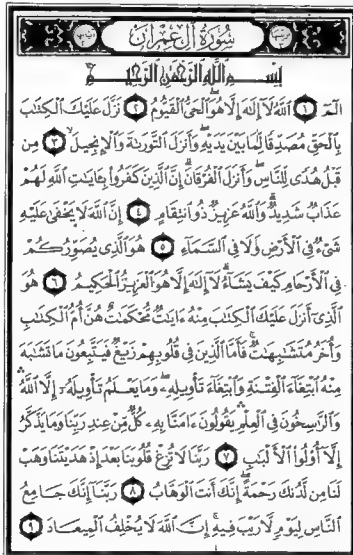 سُورَةُ آلِ عِمْرَانَ
بِسْمِ اللَّهِ الرَّحْمَٰنِ الرَّحِيمِ
الٓمٓ ١ ٱللَّهُ لَآ إِلَٰهَ إِلَّا هُوَ ٱلْحَىُّ ٱلْقَيُّومُ ٢ نَزَّلَ عَلَيْكَ ٱلْكِتَٰبَ
بِٱلْحَقِّ مُصَدِّقًا لِّمَا بَيْنَ يَدَيْهِ وَأَنزَلَ ٱلتَّوْرَىٰةَ وَٱلْإِنجِيلَ ٣ مِن
قَبْلُ هُدًى لِّلنَّاسِ وَأَنزَلَ ٱلْفُرْقَانَ إِنَّ ٱلَّذِينَ كَفَرُوا۟ بِـَٔايَٰتِ ٱللَّهِ لَهُمْ
عَذَابٌ شَدِيدٌ وَٱللَّهُ عَزِيزٌ ذُو ٱنتِقَامٍ ٤ إِنَّ ٱللَّهَ لَا يَخْفَىٰ عَلَيْهِ
شَىْءٌ فِى ٱلْأَرْضِ وَلَا فِى ٱلسَّمَآءِ ٥ هُوَ ٱلَّذِى يُصَوِّرُكُمْ
فِى ٱلْأَرْحَامِ كَيْفَ يَشَآءُ لَآ إِلَٰهَ إِلَّا هُوَ ٱلْعَزِيزُ ٱلْحَكِيمُ ٦ هُوَ
ٱلَّذِىٓ أَنزَلَ عَلَيْكَ ٱلْكِتَٰبَ مِنْهُ ءَايَٰتٌ مُّحْكَمَٰتٌ هُنَّ أُمُّ ٱلْكِتَٰبِ
وَأُخَرُ مُتَشَٰبِهَٰتٌ فَأَمَّا ٱلَّذِينَ فِى قُلُوبِهِمْ زَيْغٌ فَيَتَّبِعُونَ مَا تَشَٰبَهَ
مِنْهُ ٱبْتِغَآءَ ٱلْفِتْنَةِ وَٱبْتِغَآءَ تَأْوِيلِهِۦ وَمَا يَعْلَمُ تَأْوِيلَهُۥٓ إِلَّا ٱللَّهُ
وَٱلرَّٰسِخُونَ فِى ٱلْعِلْمِ يَقُولُونَ ءَامَنَّا بِهِۦ كُلٌّ مِّنْ عِندِ رَبِّنَا وَمَا يَذَّكَّرُ
إِلَّآ أُو۟لُوا۟ ٱلْأَلْبَٰبِ ٧ رَبَّنَا لَا تُزِغْ قُلُوبَنَا بَعْدَ إِذْ هَدَيْتَنَا وَهَبْ
لَنَا مِن لَّدُنكَ رَحْمَةً إِنَّكَ أَنتَ ٱلْوَهَّابُ ٨ رَبَّنَآ إِنَّكَ جَامِعُ
ٱلنَّاسِ لِيَوْمٍ لَّا رَيْبَ فِيهِ إِنَّ ٱللَّهَ لَا يُخْلِفُ ٱلْمِيعَادَ ٩